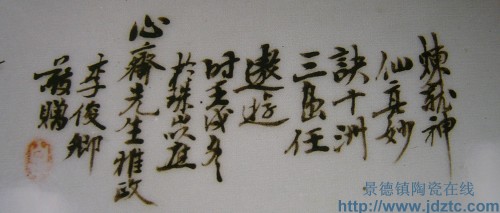 煉就神
仙真妙
訣十洲
三島任
遨遊
时壬戌冬
於珠山
心齋先生雅政
李俊卿
贈
景德镇陶瓷在线
http://www.jdztc.com